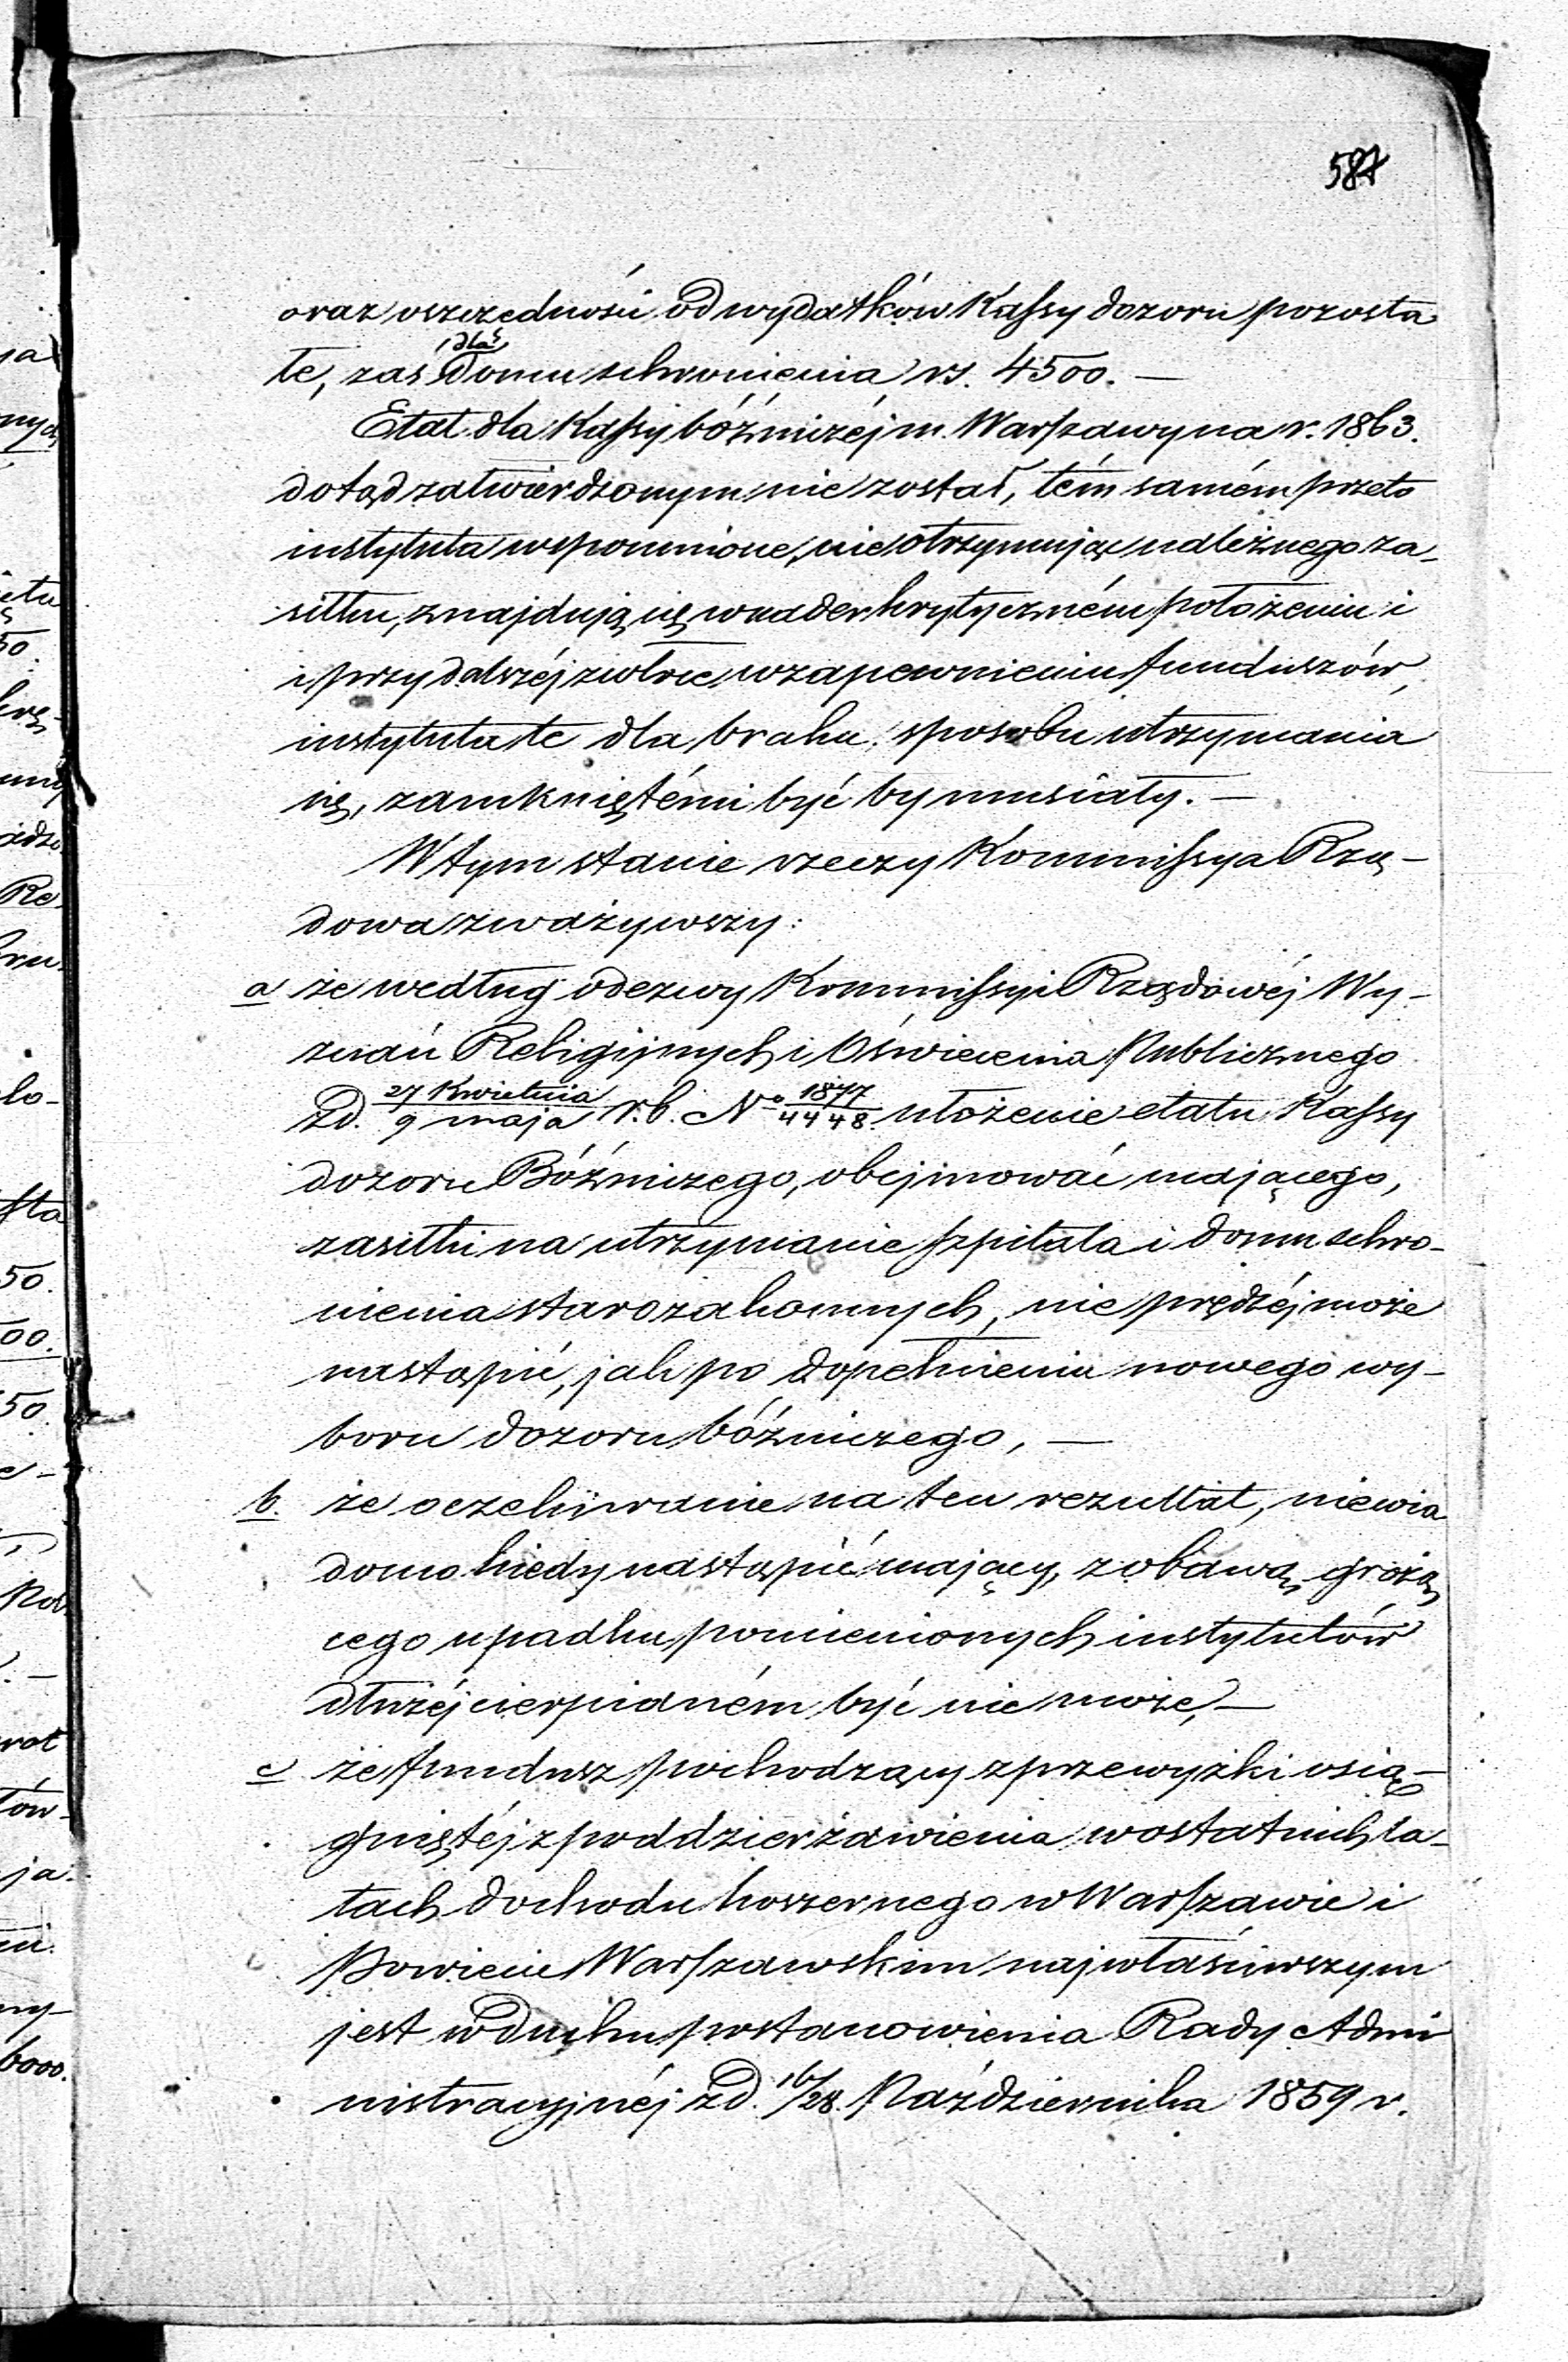 587
oraz oszczędności od wydatków Kassy dozoru pozosta
łe, zaś dla domu schronienia rs. 4500. —
Etat dla Kassy bóźniczéj m. Warszawy na r. 1863.
dotąd zatwierdzonym nie został, tém samém przeto
instytuta wspomnione, nie otrzymując należnego za-
siłku, znajdują się w nader krytyczném położeniu i
i przy dalszéj zwłoce w zapewnieniu funduszów,
instytuta te dla braku sposobu utrzymania
się, zamkniętémi być by musiały. —
W tym stanie rzeczy Kommissya Rzą-
dowa zważywszy:
a że według odezwy Kommissyi Rządowéj Wy-
znań Religijnych i Oświecenia Publicznego
z d. 27 Kwietnia / 9 maja r. b. No 1877/4448 ułożenie etatu Kassy
dozoru Bóźniczego, obejmować mającego,
zasiłki na utrzymanie szpitala i domu schro-
nienia starozakonnych, nie prędzéj może
nastąpić, jak po dopełnieniu nowego wy-
boru dozoru bóźniczego, —
b. że oczekiwanie na ten rezultat, niewia
domo kiedy nastąpić mający, z obawą grożą
cego upadku pomienionych instytutów
dłużéj cierpianém być nie może, —
c że fundusz pochodzący z przewyżki osią-
gniętéj z poddzierżawienia w ostatnich la-
tach dochodu koszernego w Warszawie i
Powiecie Warszawskim najwłaściwszym
jest w duchu postanowienia Rady Admi
nistracyjnéj z d. 16/28. Października 1859 r.